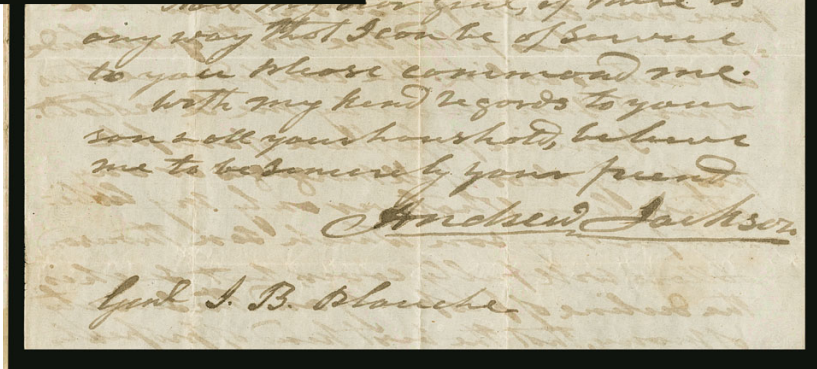 my dear Genl, if there is
any way that I can be of service
to you please command me.
With my kind regards to your
son & all your houshold, believe
me to be sincerely your friend
Andrew Jackson
Genl J. B. Planche